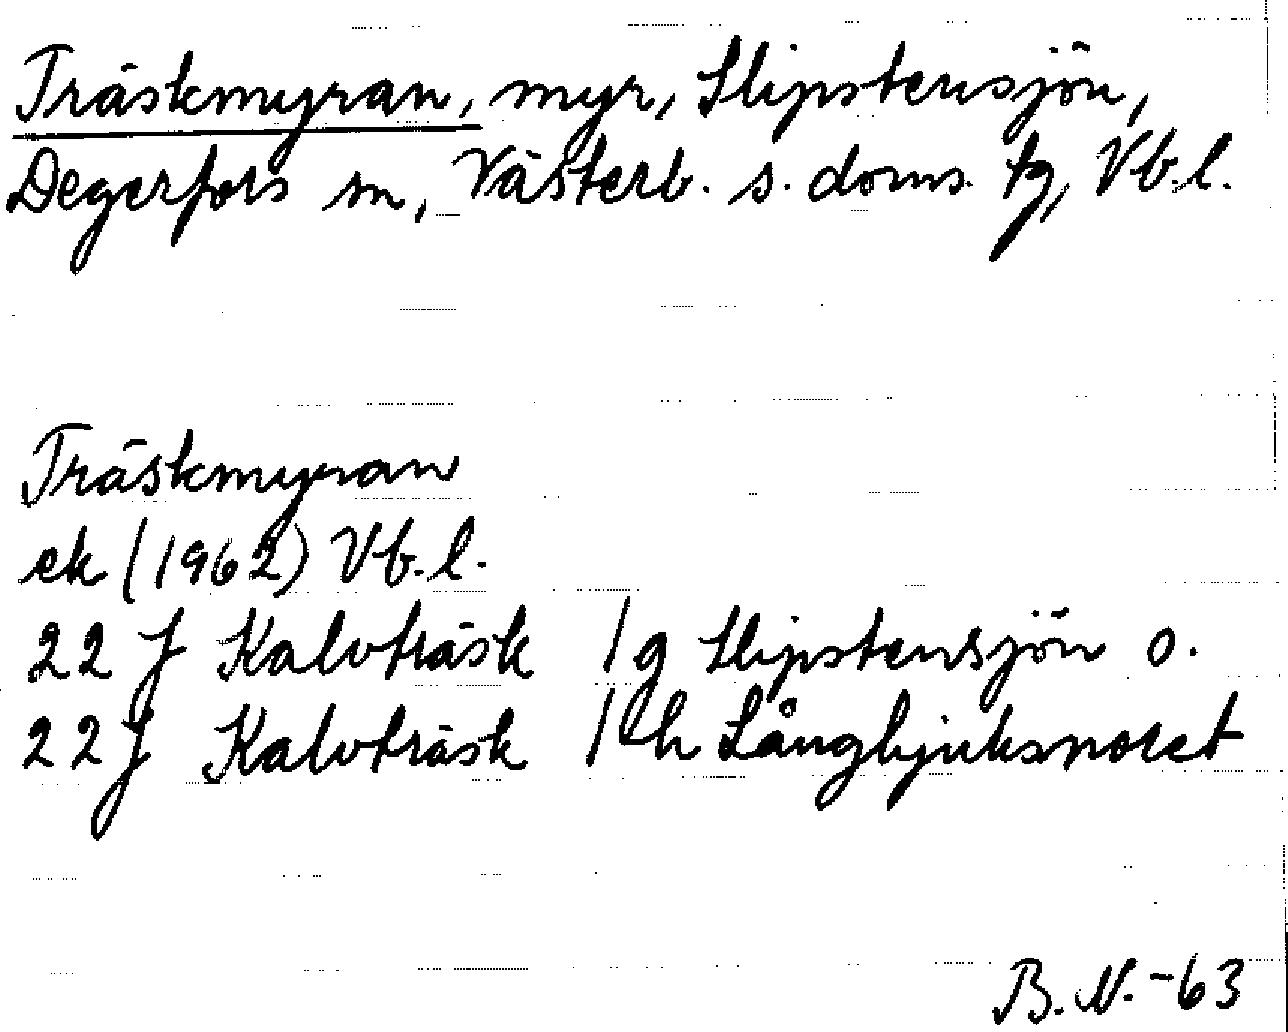 Träskmyran, myr, Slipstensjön,
Degerfors sn, Västerb. s. doms. tg, Vb.l.
Träskmyran
ek (1962) Vb.l.
22 J Kalvträsk 1 g Slipstensjön o.
22 J Kalvträsk 1 h
B. N. -63